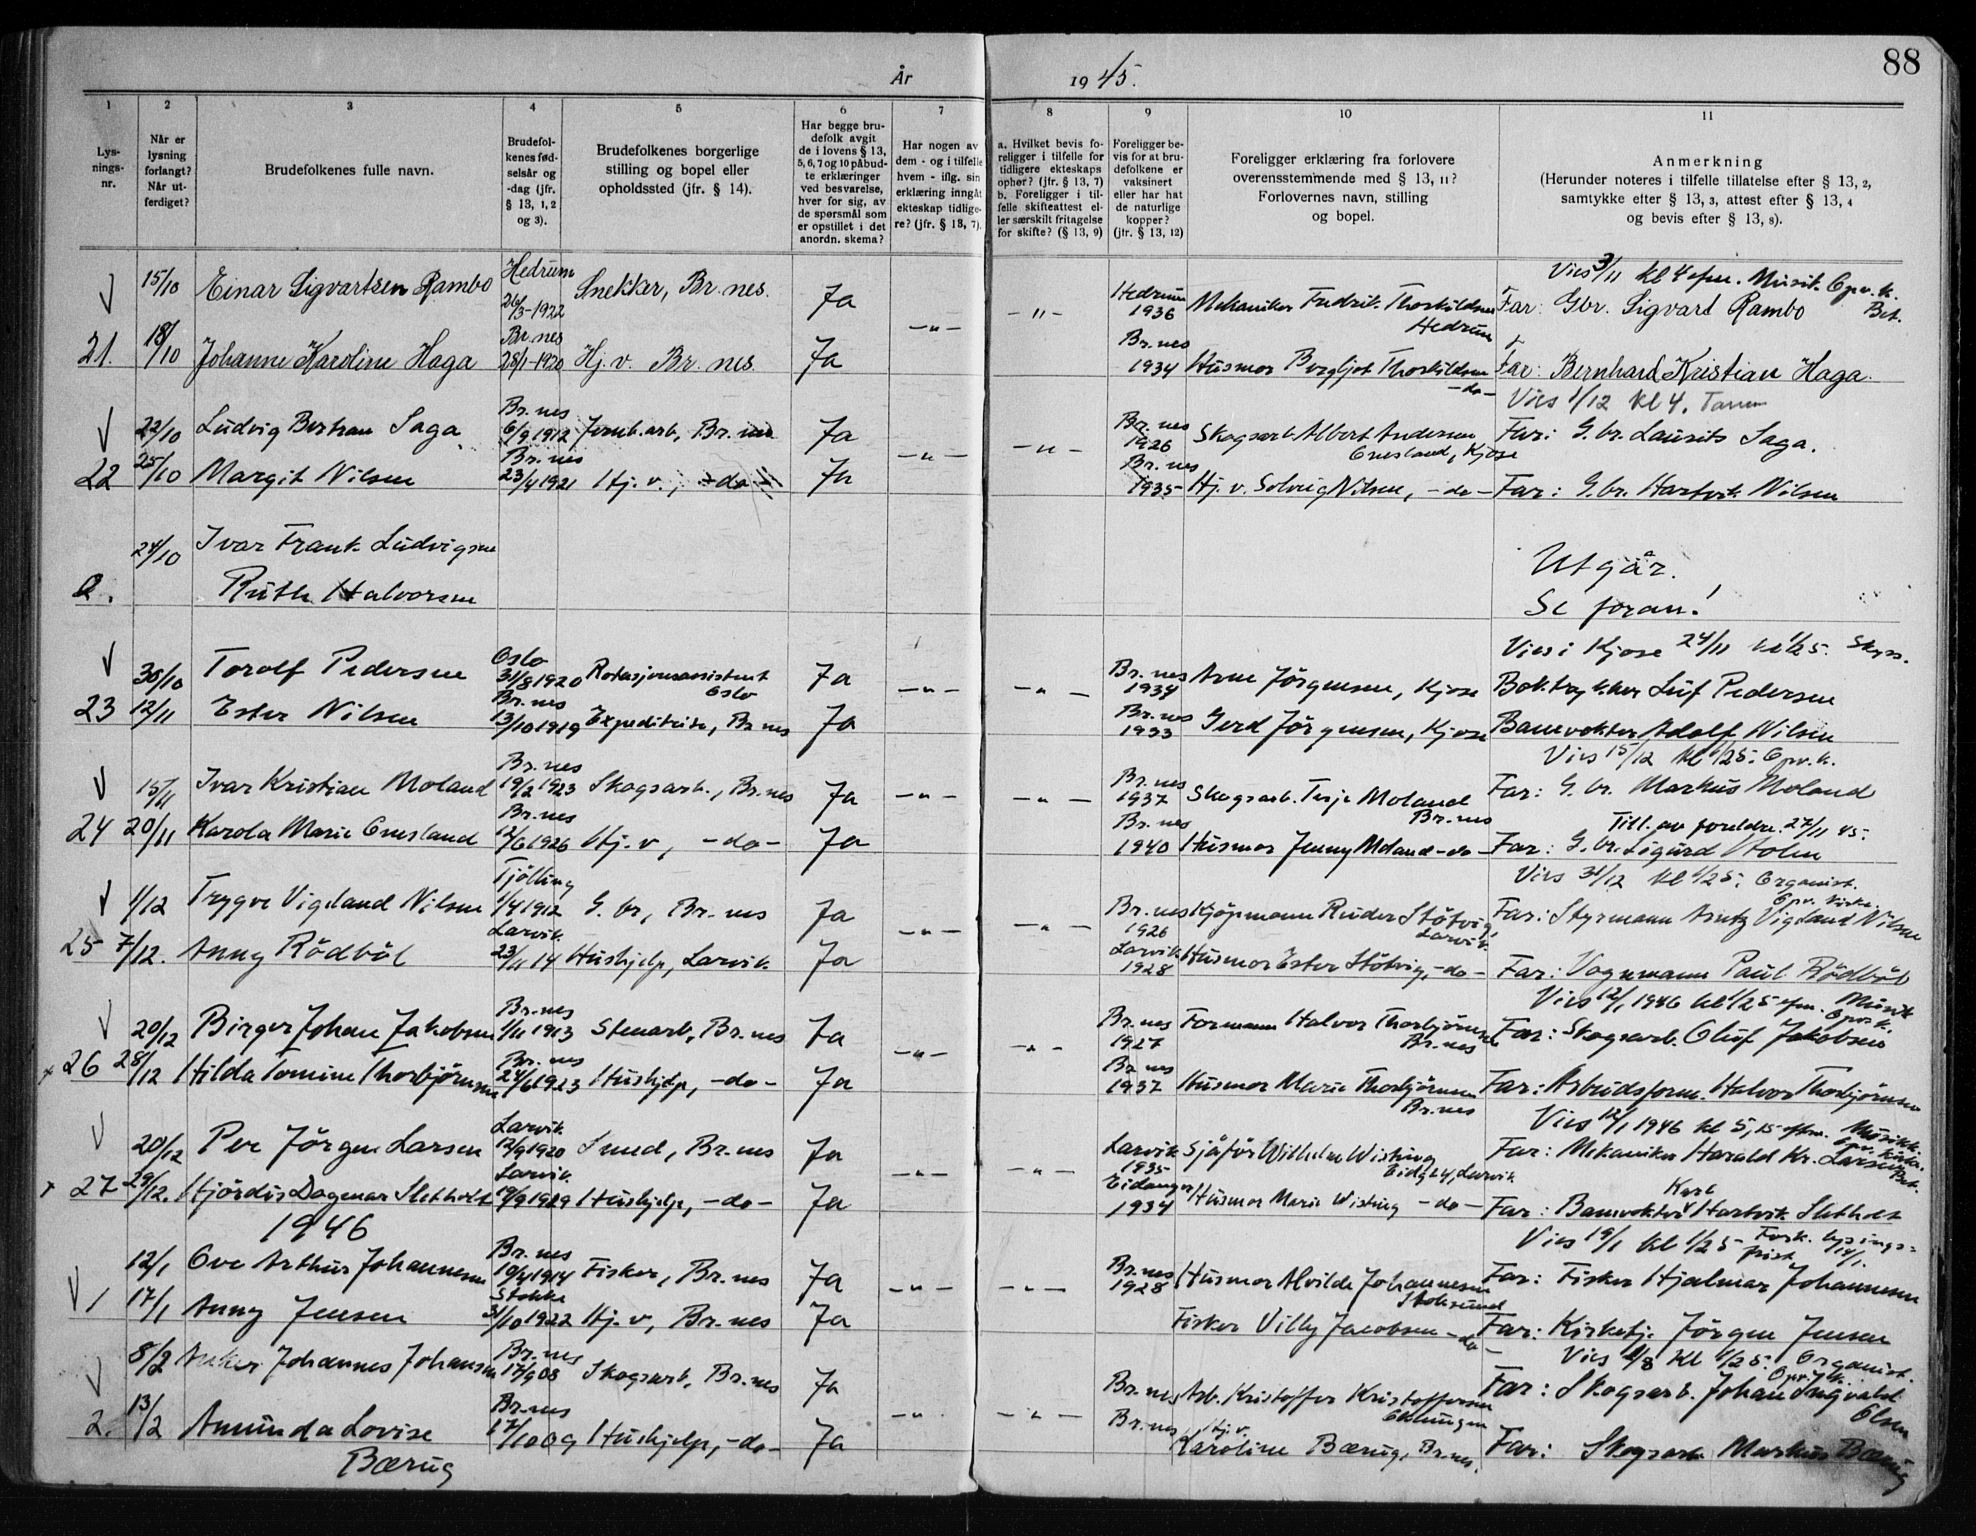 88
År 1945.
1 2 3 4 5 6 7 8 9 10 11
Lysningsnr.
Når er lysning forlangt? Når utferdiget?
Brudefolkenes fulle navn.
Brudefolkenes fødselsår og -dag (jfr. § 13, 1, 2 og 3).
Brudefolkenes borgerlige stilling og bopel eller opholdssted (jfr. § 14).
Har begge brudefolk avgit de i lovens § 13, 5, 6, 7 og 10 påbudte erklæringer ved besvarelse, hver for sig, av de spørsmål som er opstillet i det anordn. skema?
Har nogen av dem - og i tilfelle hvem - iflg. sin erklæring inngått ekteskap tidligere? (jfr. § 13, 7).
a. Hvilket bevis foreligger i tilfelle for tidligere ekteskaps ophør? (jfr. § 13, 7) b. Foreligger i tilfelle skifteattest eller særskilt fritagelse for skifte? (§ 13, 9)
Foreligger bevis for at brudefolkene er vaksinert eller har hat de naturlige kopper? (jfr. § 13, 12)
Foreligger erklæring fra forlovere overensstemmende med § 13, 11? Forlovernes navn, stilling og bopel.
Anmerkning (Herunder noteres i tilfelle tillatelse efter § 13, 2, samtykke efter § 13, 3, attest efter § 13, 4 og bevis efter § 13, 8).
Vies 3/11 kl 4 efm. Musik. Opv. k. Bet.
15/10 Einar Sigvartsen Rambo Hedrum 26/3-1922 Snekker, Br.nes. Ja -"- -"- Hedrum 1936 Mekaniker Fredrik Thorkildsen Hedrum Far: Gbr. Sigvard Rambo
21. 18/10 Johanne Karoline Haga Br.nes 28/1-1920 Hj.v. Br.nes. Ja Br.nes 1934 Husmor Bergljot Thorkildsen -do- Far: Bernhard Kristian Haga.
Vies 1/12 kl 4.
22/10 Ludvig Bertran Saga Br.nes 6/9 1912 Jernb.arb, Br.nes Ja -"- -"- Br.nes 1926 Skogsarb. Albert Andersen Gnesland, Kjose Far: G.br. Laurits Saga.
22 25/10 Margit Nilsen Br.nes 23/4 1921 Hj.v., -do- Ja Br.nes 1935 Hj.v. Solveig Nilsen, -do- Far: G.br. Hartvik Nilsen
24/10 Ivar Frank Ludvigsen Utgår.
a. Ruth Halvorsen Se foran!
Vies i Kjose 24/11 kl 1/2 5.
30/10 Torolf Pedersen Oslo 31/8 1920 Rotasjonsassistent Oslo Ja -"- -"- Br.nes 1934 Arne Jörgensen, Kjose Boktrykker Leif Pedersen
23 12/11 Ester Nilsen Br.nes 13/10 1919 Expeditrise, Br.nes Ja Br.nes 1933 Gerd Jörgensen, Kjose Banevokter Adolf Nilsen
Vies 15/12 kl 1/2 5. Opv.k.
15/11 Ivar Kristian Moland Br.nes 19/2 1923 Skogsarb., Br.nes Ja -"- -"- Br.nes 1937 Skogsarb. Terje Moland Br.nes Far: G.br. Markus Moland
Till. av foreldre 27/11 45.
24 20/11 Karola Marie Gnesland Br.nes 12/6 1926 Hj.v, -do- Ja Br.nes 1940 Husmor Jenny Moland -do- Far: G.br. Sigurd Holm
Vies 31/12 kl 1/2 5. Organist. Opv. kirke.
1/12 Trygve Vigeland Nilsen Tjölling 1/4 1912 G.br, Br.nes Ja -"- -"- Br.nes 1926 Kjöpmann Reider Stötvig, Larvik. Far: Styrmann Arntz Vigeland Nilsen
25 7/12. Anny Rödböl Larvik. 23/11 14 Hushjelp, Larvik. Ja Larvik 1928 Husmor Ester Stötvig, -do- Far: Vognmann Paul Rödböl
Vies 12/1 1946 kl 1/2 5 efm. Musik Opv.k.
20/12 Birger Johan Jakobsen Br.nes 1/11 1913 Stenarb, Br.nes Ja -"- -"- Br.nes 1927 Formann Halvor Thorbjörnsen Br.nes Far: Skogsarb. Oluf Jakobsen
x 26 28/12 Hilda Tomine Thorbjörnsen Br.nes 24/6 1923 Hushjelp, -do- Ja Br.nes 1937 Husmor Marie Thorbjörnsen Br.nes Far: Arbeidsform. Halvor Thorbjörnsen
Vies 12/1 1946 kl 5,15 efm. Musikk. Opv. kirke. Bet.
20/12 Per Jörgen Larsen Larvik. 12/9 1920 Smed, Br.nes Ja -"- -"- Larvik 1935 Sjåför Wilhelm Wisting Eidg 24, Larvik Far: Mekaniker Harald Kr. Larsen
x 27 29/12. Hjördis Dagmar Sletholt Larvik. 19/9 1929 Hushjelp, -do- Ja Eidanger 1934 Husmor Marie Wisting -do- Far: Banevokter Karl Hartvik Sletholt
1946
Vies 19/1 kl 1/2 5 Fork. lysingsfrist 14/1.
12/1 Ove Arthur Johannesen Br.nes 10/4 1914 Fisker, Br.nes Ja -"- -"- Br.nes 1928 Husmor Alvilde Johannesen Stoksund Far: Fisker Hjalmar Johannesen
1 17/1 Anny Jensen Stokke 31/10 1922 Hj.v, Br.nes Ja Fisker Villy Jacobsen -do- Far: Kirketj. Jörgen Jensen
Vies kl 1/2 5. Organist.
8/2 Johannes Johansen Br.nes 17/9 08 Skogsarb, Br.nes Ja -"- -"- Br.nes Arb. Kristoffer Kristoffersen Far: Skogsarb. Johan Ingvald Olsen
2. 13/2 Amunda Lovise Bærug Br.nes 17/10 09 Hushjelp, -do- Ja Br.nes Hj.v. Karoline Bærug, Br.nes. Far: Skogsarb Markus Bærug